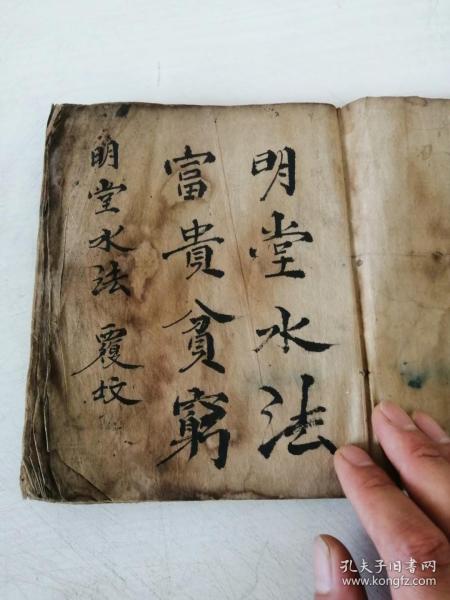 明堂水法
富貴貧窮
明堂水法 覆坟
孔夫子旧书网
www.kongfz.com